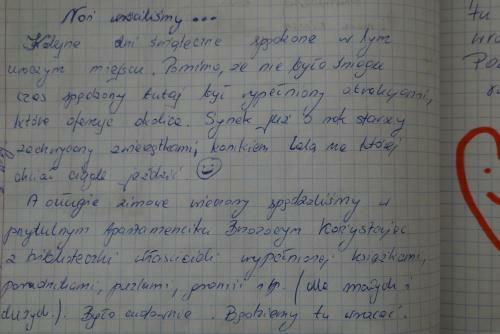 Noń wróciliśmy ...
Kolejne dni świąteczne spędzone w tym
uroczym miejscu. Pomimo, że nie było śniegu
czas spędzony tutaj był wypełniony atrakcjami,
które oferuje okolica. Synek już o rok starszy
zachwycony zwierzątkami, konikiem Lolą na której
chciał ciągle jeździć
A długie zimowe wieczory spędzaliśmy w
przytulnym Apartamenciku Brzozowym Korzystając
z biblioteczki Właścicieli wypełnionej książkami,
poradnikami, puzlami, grami itp. (dla małych i
dużych). Było cudownie. Będziemy tu wracać.
tu